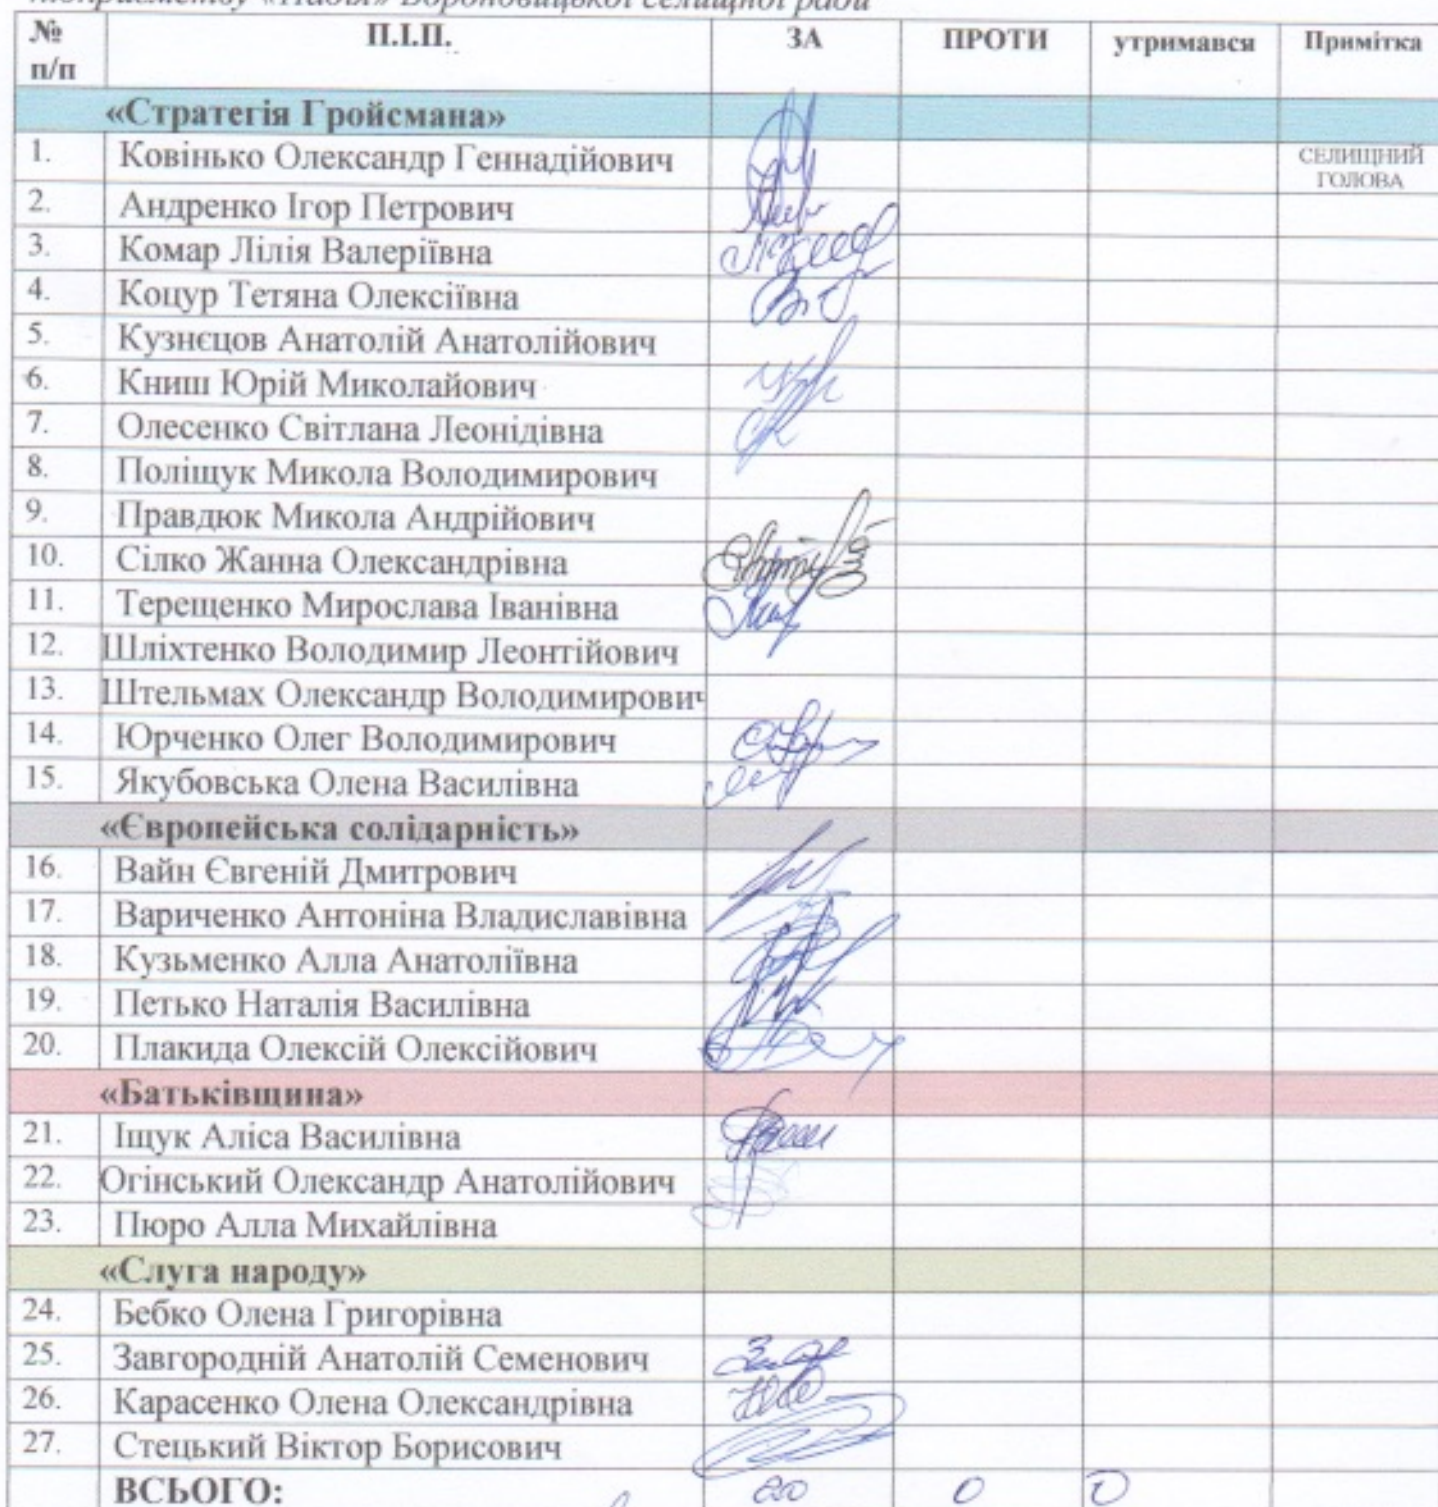 підприємству «Надія» Вороновицької селищної ради
№ п/п П.І.П. ЗА ПРОТИ утримався Примітка
«Стратегія Гройсмана»
1. Ковінько Олександр Геннадійович СЕЛИЩНИЙ ГОЛОВА
2. Андренко Ігор Петрович
3. Комар Лілія Валеріївна
4. Коцур Тетяна Олексіївна
5. Кузнєцов Анатолій Анатолійович
6. Книш Юрій Миколайович
7. Олесенко Світлана Леонідівна
8. Поліщук Микола Володимирович
9. Правдюк Микола Андрійович
10. Сілко Жанна Олександрівна
11. Терещенко Мирослава Іванівна
12. Шліхтенко Володимир Леонтійович
13. Штельмах Олександр Володимирович
14. Юрченко Олег Володимирович
15. Якубовська Олена Василівна
«Європейська солідарність»
16. Вайн Євгеній Дмитрович
17. Вариченко Антоніна Владиславівна
18. Кузьменко Алла Анатоліївна
19. Петько Наталія Василівна
20. Плакида Олексій Олексійович
«Батьківщина»
21. Іщук Аліса Василівна
22. Огінський Олександр Анатолійович
23. Пюро Алла Михайлівна
«Слуга народу»
24. Бебко Олена Григорівна
25. Завгородній Анатолій Семенович
26. Карасенко Олена Олександрівна
27. Стецький Віктор Борисович
ВСЬОГО: 20 0 0